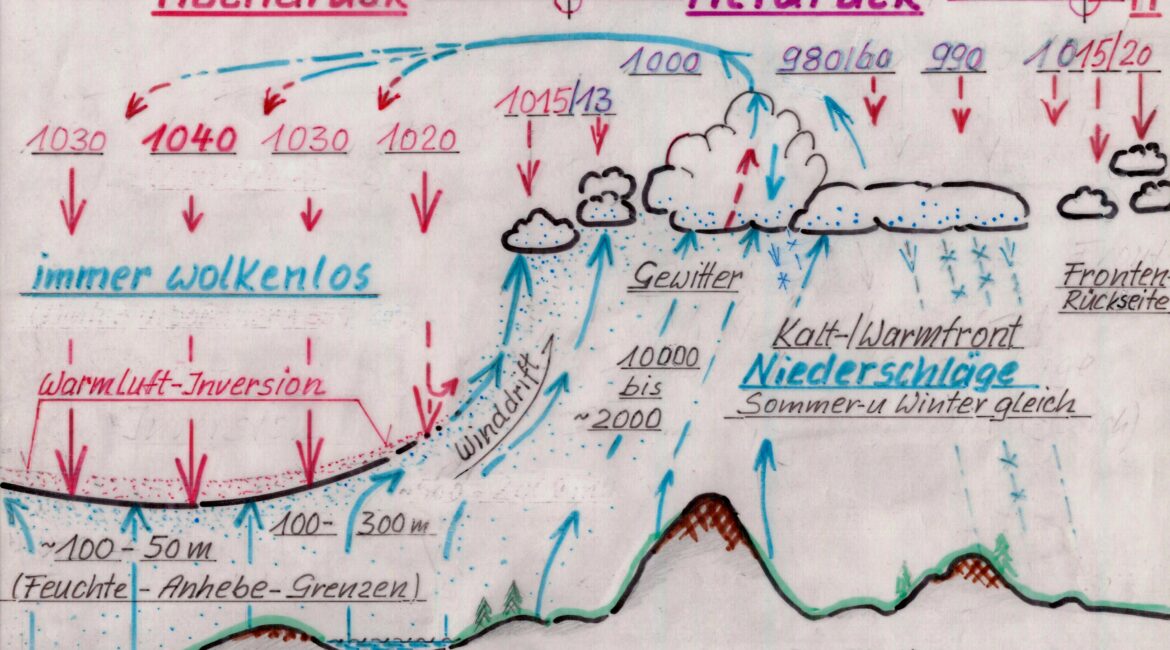 Hochdruck
Tiefdruck
H
1000
980/60
990
1015/20
1015/13
1030
1040
1030
1020
immer wolkenlos
Gewitter
Fronten-
Rückseite
Kalt-/Warmfront
Niederschläge
Sommer-u Winter gleich
Warmluft-Inversion
Winddrift
10000
bis
~2000
100- 300m
~100-50m
(Feuchte-Anhebe-Grenzen)